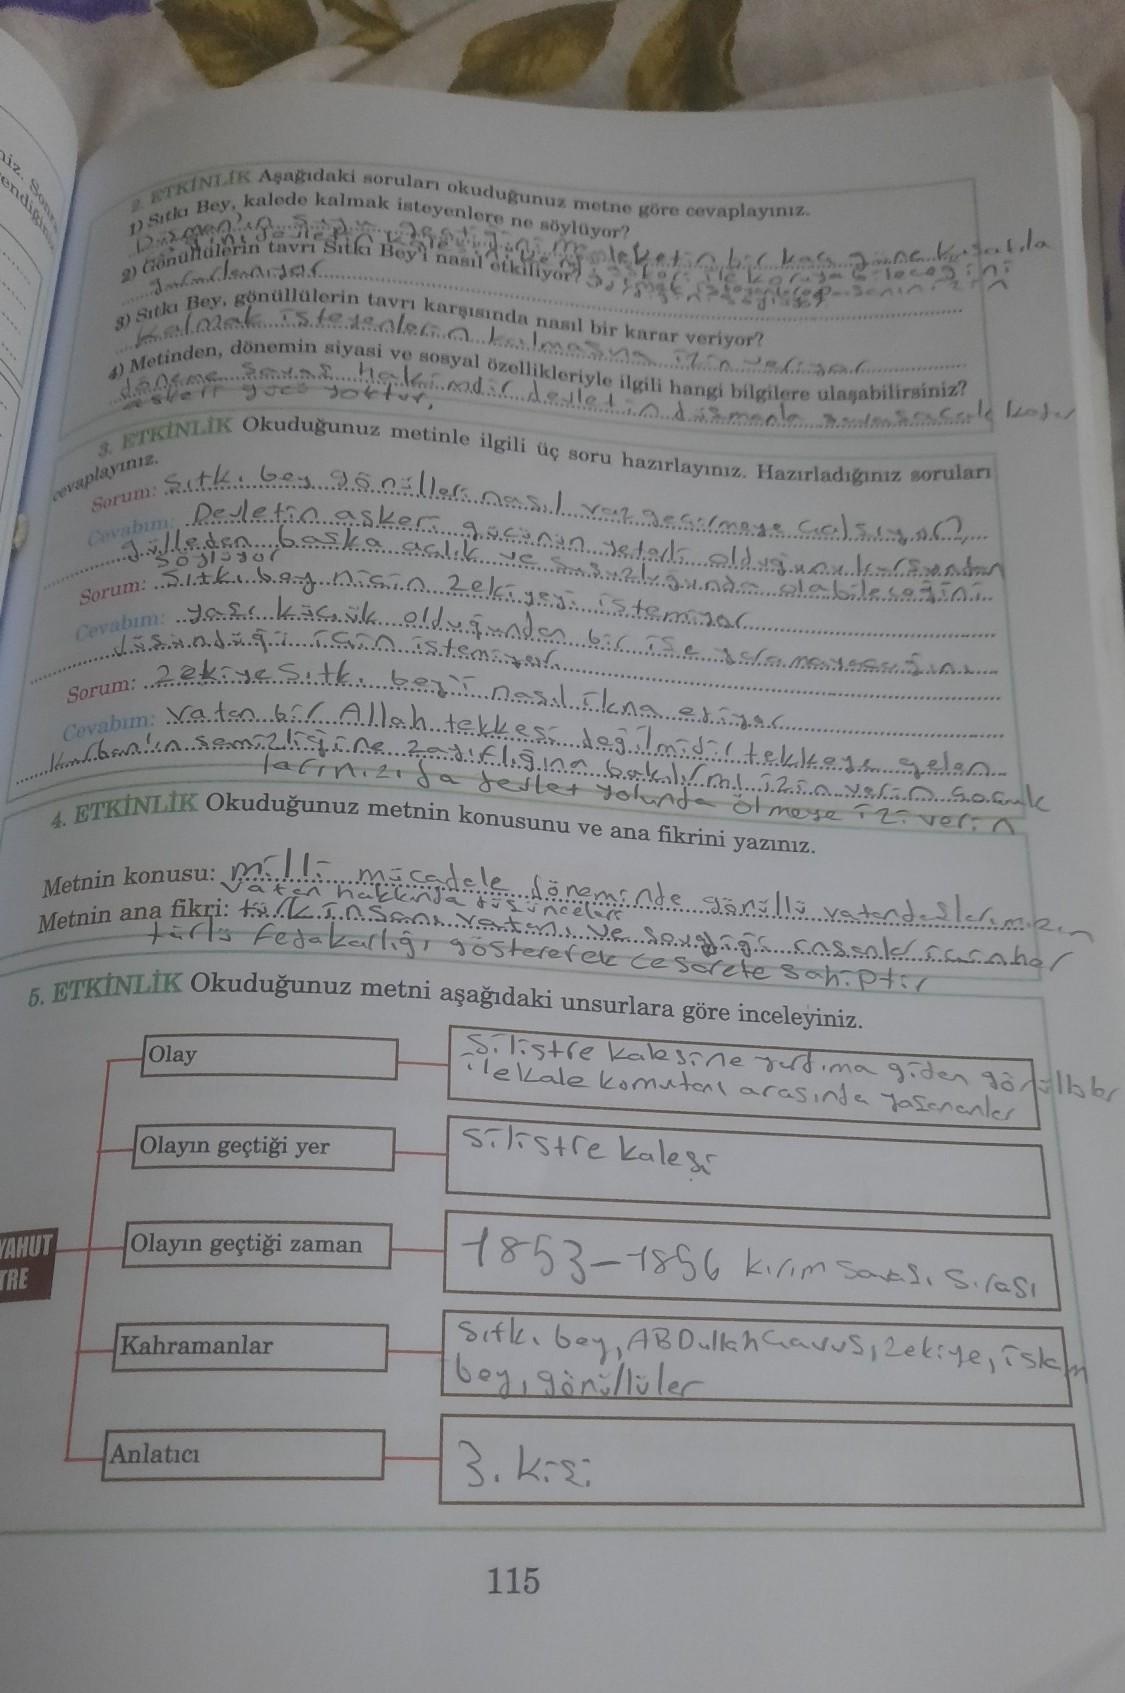 niz. Sonra
endiğiniz
2. ETKİNLİK Aşağıdaki soruları okuduğunuz metne göre cevaplayınız.
1) Sıtkı Bey, kalede kalmak isteyenlere ne söylüyor?
memleketin bir kaç güne kuşatıla
2) Gönüllülerin tavrı Sıtkı Bey'i nasıl etkiliyor?
3) Sıtkı Bey, gönüllülerin tavrı karşısında nasıl bir karar veriyor?
kalmak isteyenlerin kalmasına izin veriyor
4) Metinden, dönemin siyasi ve sosyal özellikleriyle ilgili hangi bilgilere ulaşabilirsiniz?
döneme savaş hakimdir devletin düşmanla savaşacak kadar
askeri gücü yoktur.
3. ETKİNLİK Okuduğunuz metinle ilgili üç soru hazırlayınız. Hazırladığınız soruları
cevaplayınız.
Sorum: Sıtkı bey gönülleri nasıl vaz geçirmeye çalışıyor?
Cevabım: Devletin askeri gücünün yeterli olduğunu kurşundan
gülleden başka açlık ve susuzluğunda olabileceğini
söylüyor
Sorum: Sıtkı bey niçin Zekiyeyi istemiyor
Cevabım: yaşı küçük olduğundan bir işe yaramayacağını
düşündüğü için istemiyor.
Sorum: Zekiye Sıtkı beyi nasıl ikna ediyor
Cevabım: Vatan bir Allah tekkesi değilmidir tekkeye gelen
Kurban'ın semizliğine zayıflığına bakılırmı izin verin çocuk
larınızıda devlet yolunda ölmeye izi verin
4. ETKİNLİK Okuduğunuz metnin konusunu ve ana fikrini yazınız.
Metnin konusu: milli mücadele döneminde gönüllü vatandaşlarımızın
vatan hakkında düşünceleri
Metnin ana fikri: türk insanı vatanı ve sevdiği insanlar için her
türlü fedakarlığı gösterecek cesarete sahiptir
5. ETKİNLİK Okuduğunuz metni aşağıdaki unsurlara göre inceleyiniz.
Olay
Silistre kalesine yardıma giden gönüllüler
ile kale komutanı arasında yaşananlar
Olayın geçtiği yer
silistre kalesi
YAHUT
TRE
Olayın geçtiği zaman
1853-1856 kırım savaşı sırası
Kahramanlar
Sıtkı bey, ABDullah Çavuş, Zekiye, islam
bey, gönüllüler
Anlatıcı
3. kişi
115